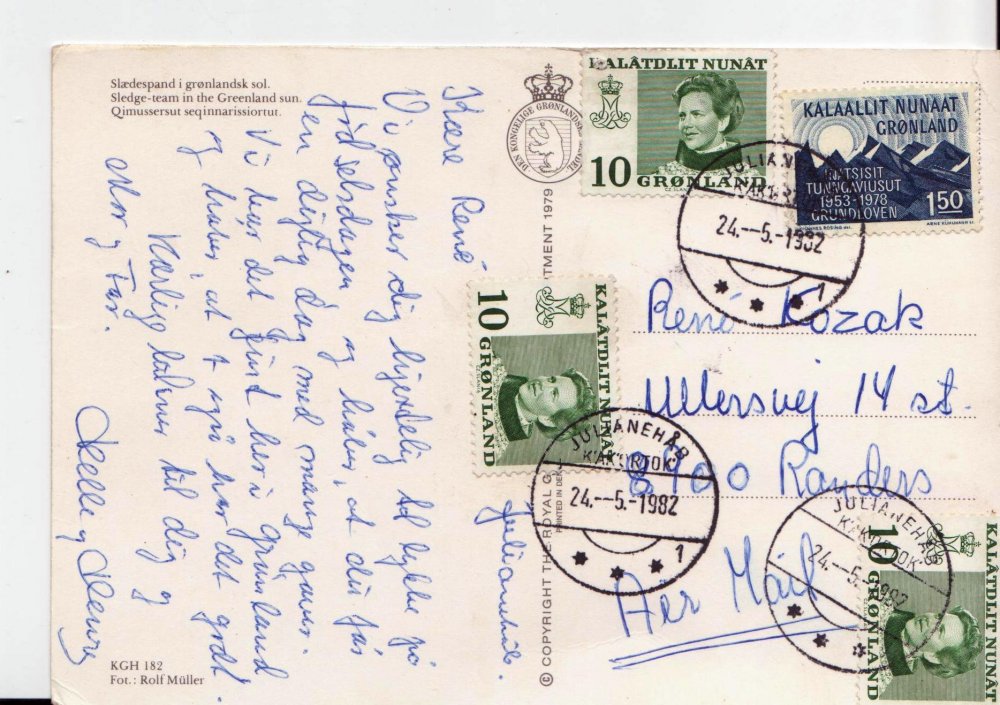 Slædespand i grønlandsk sol.
Sledge-team in the Greenland sun.
Qimussersut seqinnarissiortut.
Kære René
Vi ønsker dig hjertelig til lykke på
fødselsdagen, og håber, at du får
en dejlig dag med mange gaver.
Vi har det fint her i Grønland
og håber, at I også har det godt.
Kærlige hilsner til dig og
Mor og Far.
Helle og Henry
Julianehåb.
KGH 182
Fot.: Rolf Müller
DEN KONGELIGE GRØNLANDSKE HANDEL
© COPYRIGHT THE ROYAL G
TMENT 1979
PRINTED IN DEN
KALÂTDLIT NUNÂT
10 GRØNLAND
KALAALLIT NUNAAT
GRØNLAND
TUNNGAVIUSUT
1953-1978
GRUNDLOVEN
150
JULIANE
24.--5.-1982
1
KALÂTDLIT NUNÂT
10 GRØNLAND
JULIANEHÅB
K'AK'ORTOK'
24.--5.-1982
1
René Kozak
Ullersvej 14 st.
8900 Randers
Air Mail
JULIANEHÅB
K'AK'ORTOK'
24.--5.-1982
1
KALÂTDLIT NUNÂT
10 GRØNLAND